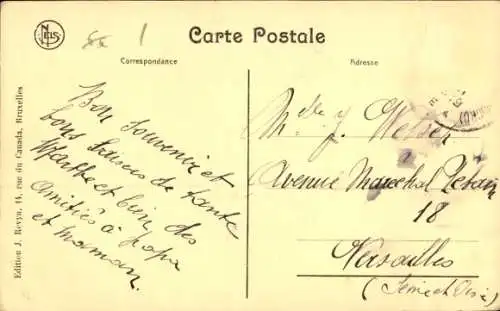 NELS
Carte Postale
Correspondance
Adresse
Edition J. Revyn, 44, rue du Canada, Bruxelles
Bon souvenir et
bons baisers de tante
Marthe et bien des
amitiés à papa
et maman.
Melle J.
Avenue Maréchal Pétain
18
Versailles
(Seine et Oise)